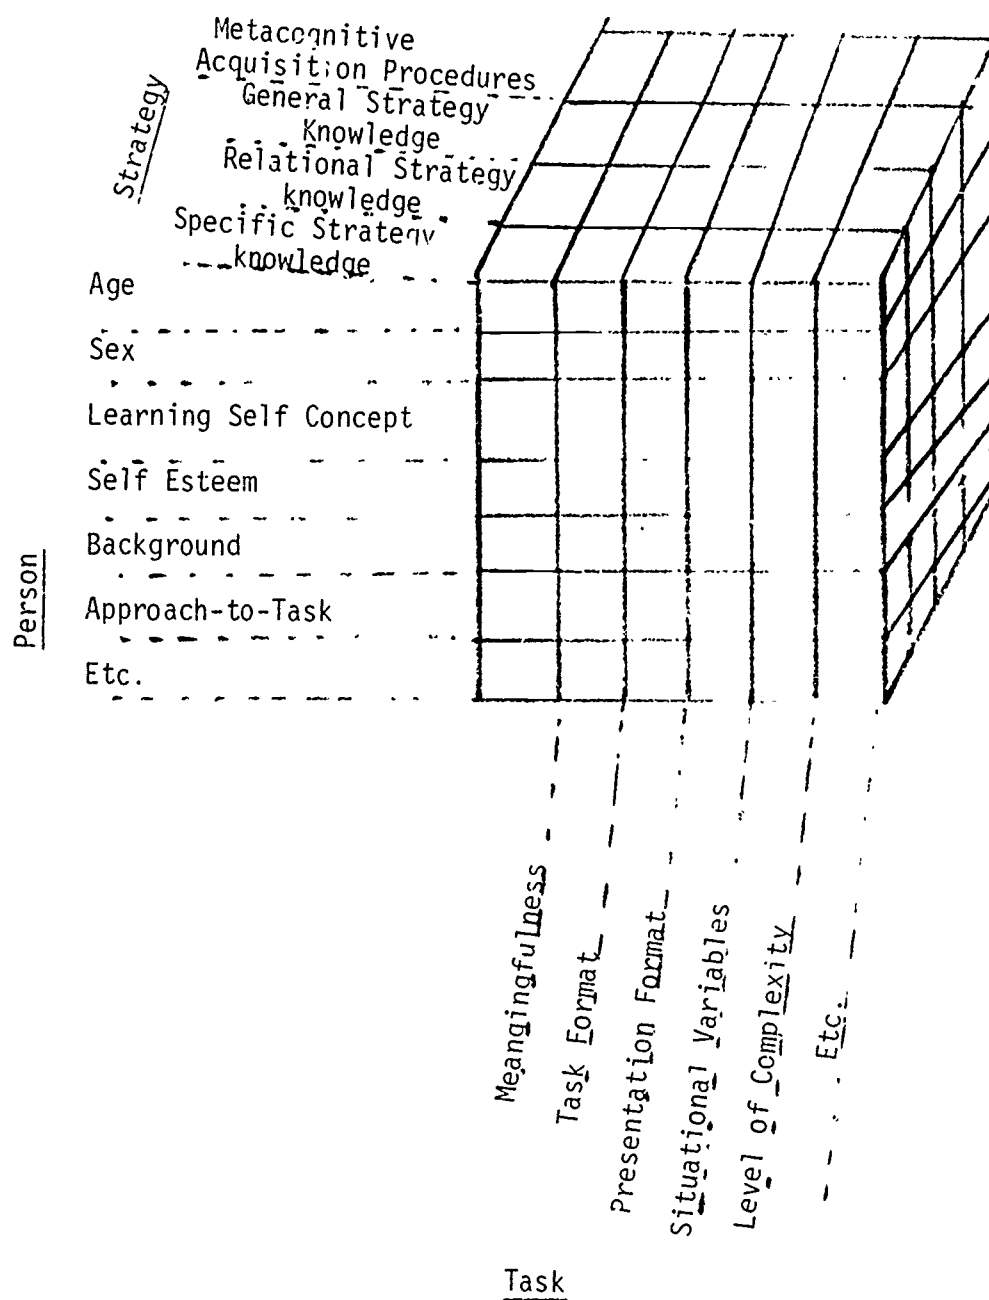 Metacognitive
Acquisition Procedures
General Strategy
Knowledge
Relational Strategy
knowledge
Specific Strategy
knowledge
Strategy
Age
Sex
Learning Self Concept
Self Esteem
Background
Approach-to-Task
Etc.
Person
Meangingfulness
Task Format
Presentation Format
Situational Variables
Level of Complexity
Etc.
Task